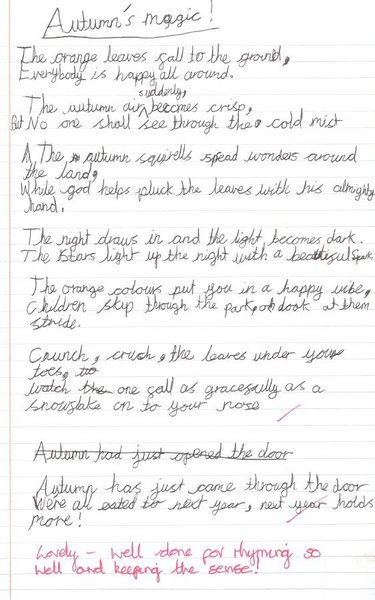 Autumn's magic!
The orange leaves fall to the ground,
Everybody is happy all around.
suddenly,
The autumn air becomes crisp,
But No one shall see through the cold mist
The autumn squirells spead wonders around
the land,
While god helps pluck the leaves with his almighty
hand.
The night draws in and the light becomes dark.
The stars light up the night with a beatiful spark.
The orange colours put you in a happy vibe,
Children skip through the park, look at them
stride.
Crunch, crush, the leaves under your
toes,
watch the one fall as gracefully as a
snowflake on to your nose
Autumn had just opened the door
Autumn has just came through the door
We're all to next year, next year holds
more!
Lovely - well done for rhyming so
well and keeping the sense!